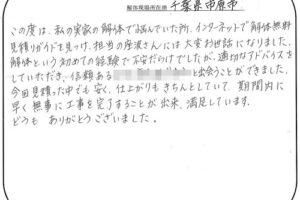 解体現場所在地 千葉県市原市
この度は、私の実家の解体で悩んでいた所、インターネットで解体無料
見積りガイドを見つけ、担当の摩波さんには大変お世話になりました。
解体という初めての経験で不安だらけでしたが、適切なアドバイスを
していただき、信頼ある と出会うことができました。
今回見積った中でも安く、仕上がりもきちんとしていて、期間内に
早く無事に工事を完了することが出来、満足しています。
どうも ありがとうございました。